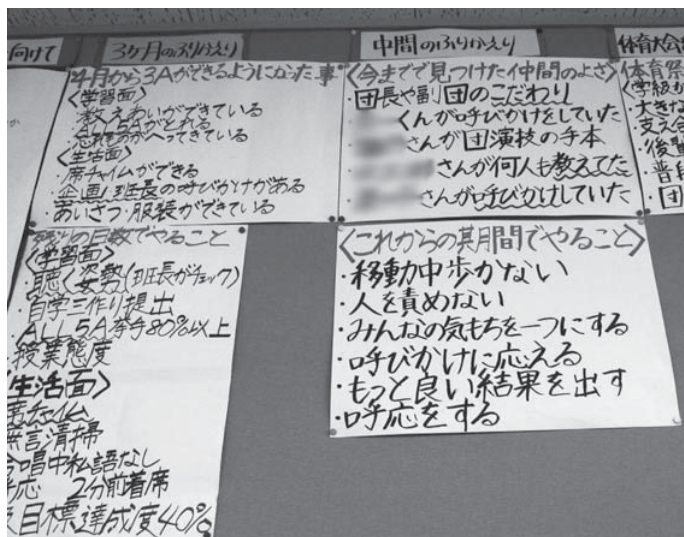 向けて
3ヶ月のふりかえり
4月から3Aができるようになった事
<学習面>
・教えあいができている
・ALL5Aがとれる
・忘れものがへってきている
<生活面>
・席チャイムができる
・企画/班長の呼びかけがある
・あいさつ・服装ができている
残りの日数でやること
<学習面>
・聴く姿勢(班長がチェック)
・自学三作り提出
・ALL5A挙手80%以上
授業態度
<生活面>
席チャイム
無言清掃
合唱中私語なし
呼応 2分前着席
目標達成度40%
中間のふりかえり
<今までで見つけた仲間のよさ>
・団長や副団のこだわり
くんが呼びかけをしていた
さんが団演技の手本
さんが何人も教えてた
さんが呼びかけしていた
<これからの期間でやること>
・移動中歩かない
・人を責めない
・みんなの気もちを一つにする
・呼びかけに応える
・もっと良い結果を出す
・呼応をする
体育大会
体育祭
<学級
・大きな
・支え合
・後輩
・普段
・団